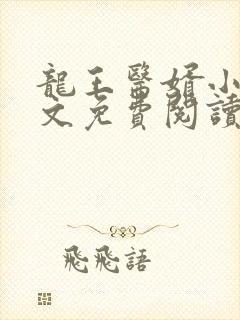 龍王醫婿小
文免費閱讀
飛飛語